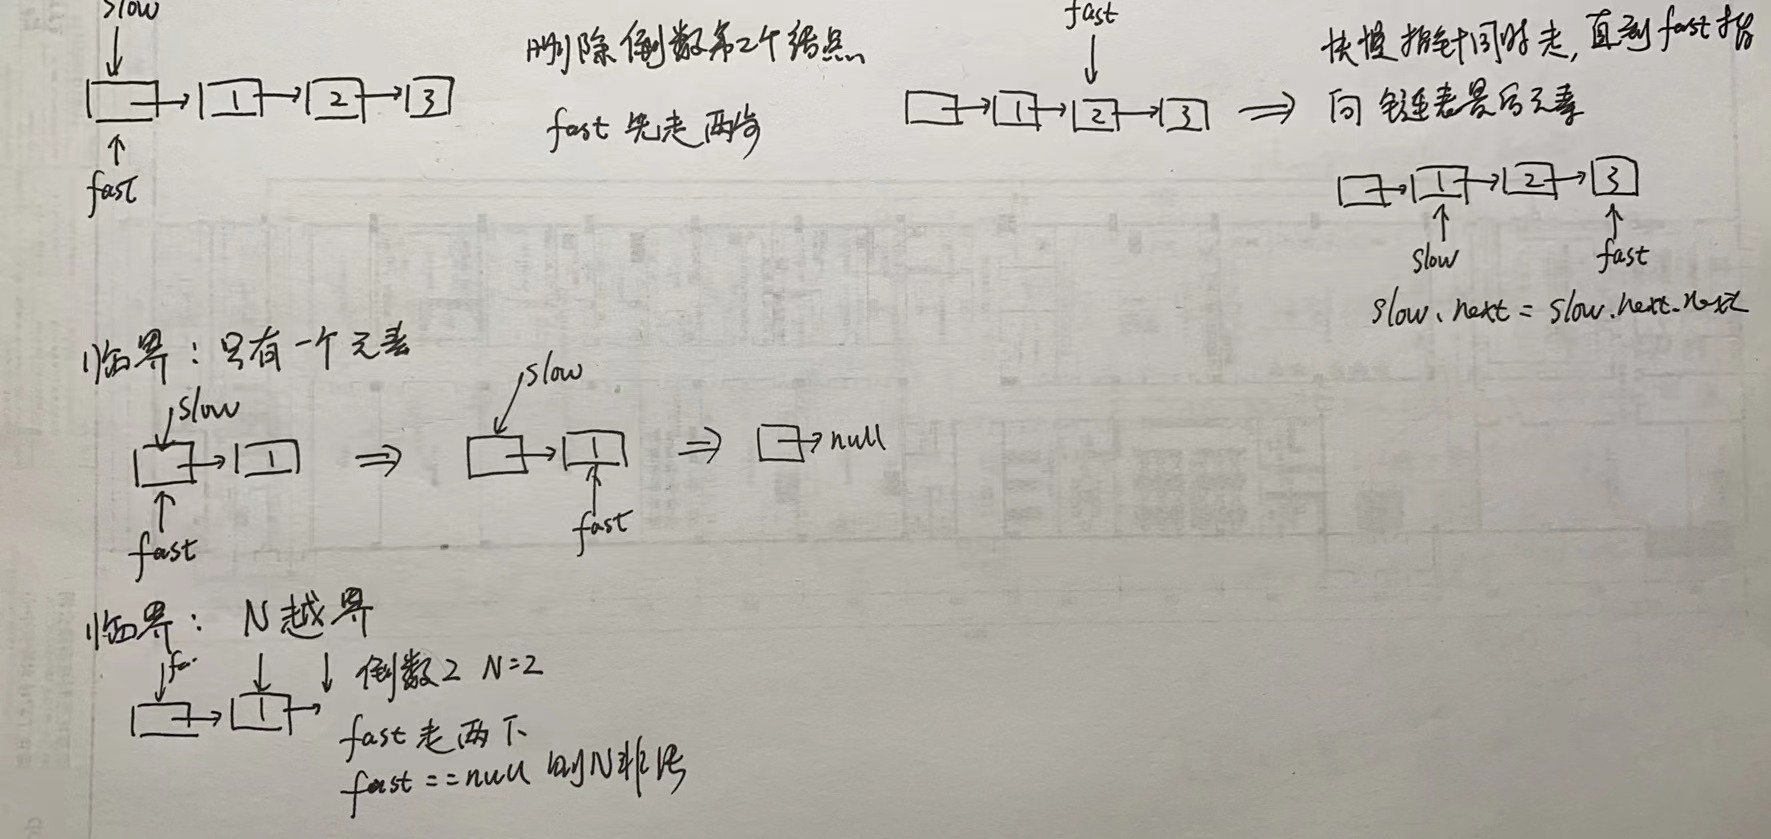 slow
1 2 3
fast
删除倒数第2个结点
fast 先走两步
fast
1 2 3
快慢指针同时走,直到fast指
向链表最后元素
1 2 3
slow fast
slow.next = slow.next.next
临界:只有一个元素
slow
1
fast
slow
1
fast
null
临界: N越界
fa
1
倒数2 N=2
fast走两下
fast==null 则N非法